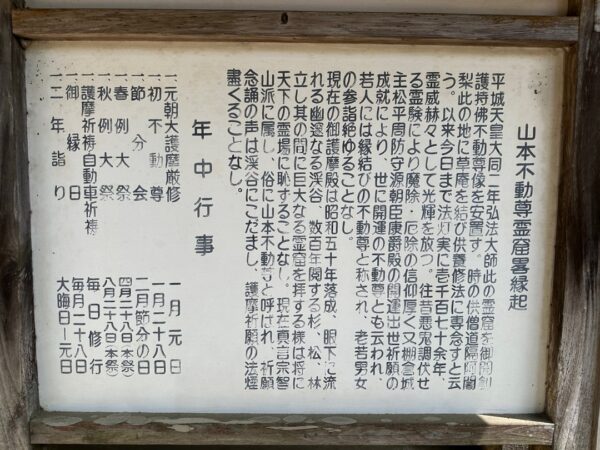 山本不動尊霊窟畧縁起
平城天皇大同二年弘法大師此の霊窟を御開創
護持佛不動尊像を安置す。時の供僧道隔阿闍
梨此の地に草庵を結び供養修法に専念すと云
う。以来今日まで法灯実に壱千百七十余年、
霊威赫々として光輝を放つ。往昔悪鬼調伏せ
る霊験により魔除・厄除の信仰厚く又棚倉城
主松平周防守源朝臣康爵殿の開運出世祈願の
成就により、世に開運の不動尊とも云われ、
若人には縁結びの不動尊と称され、老若男女
の参詣絶ゆることなし。
現在の御護摩殿は昭和五十年落成、眼下に流
れる幽邃なる渓谷、数百年閲する杉、松、林
立し其の間に巨大なる霊窟を拝する様は将に
天下の霊場に恥することなし。現在真言宗智
山派に属し、俗に山本不動尊と呼ばれ、祈願
念誦の声は渓谷にこだまし、護摩祈願の法煙
盡くることなし。
年中行事
一、元朝大護摩厳修 一月元日
一、初不動尊 一月二十八日
一、節分会 二月節分の日
一、春例大祭 四月二十八日(本祭)
一、秋例大祭 八月二十八日(本祭)
一、護摩祈祷自動車祈祷 毎日修行
一、御縁日 毎月二十八日
一、二年詣り 大晦日~元日